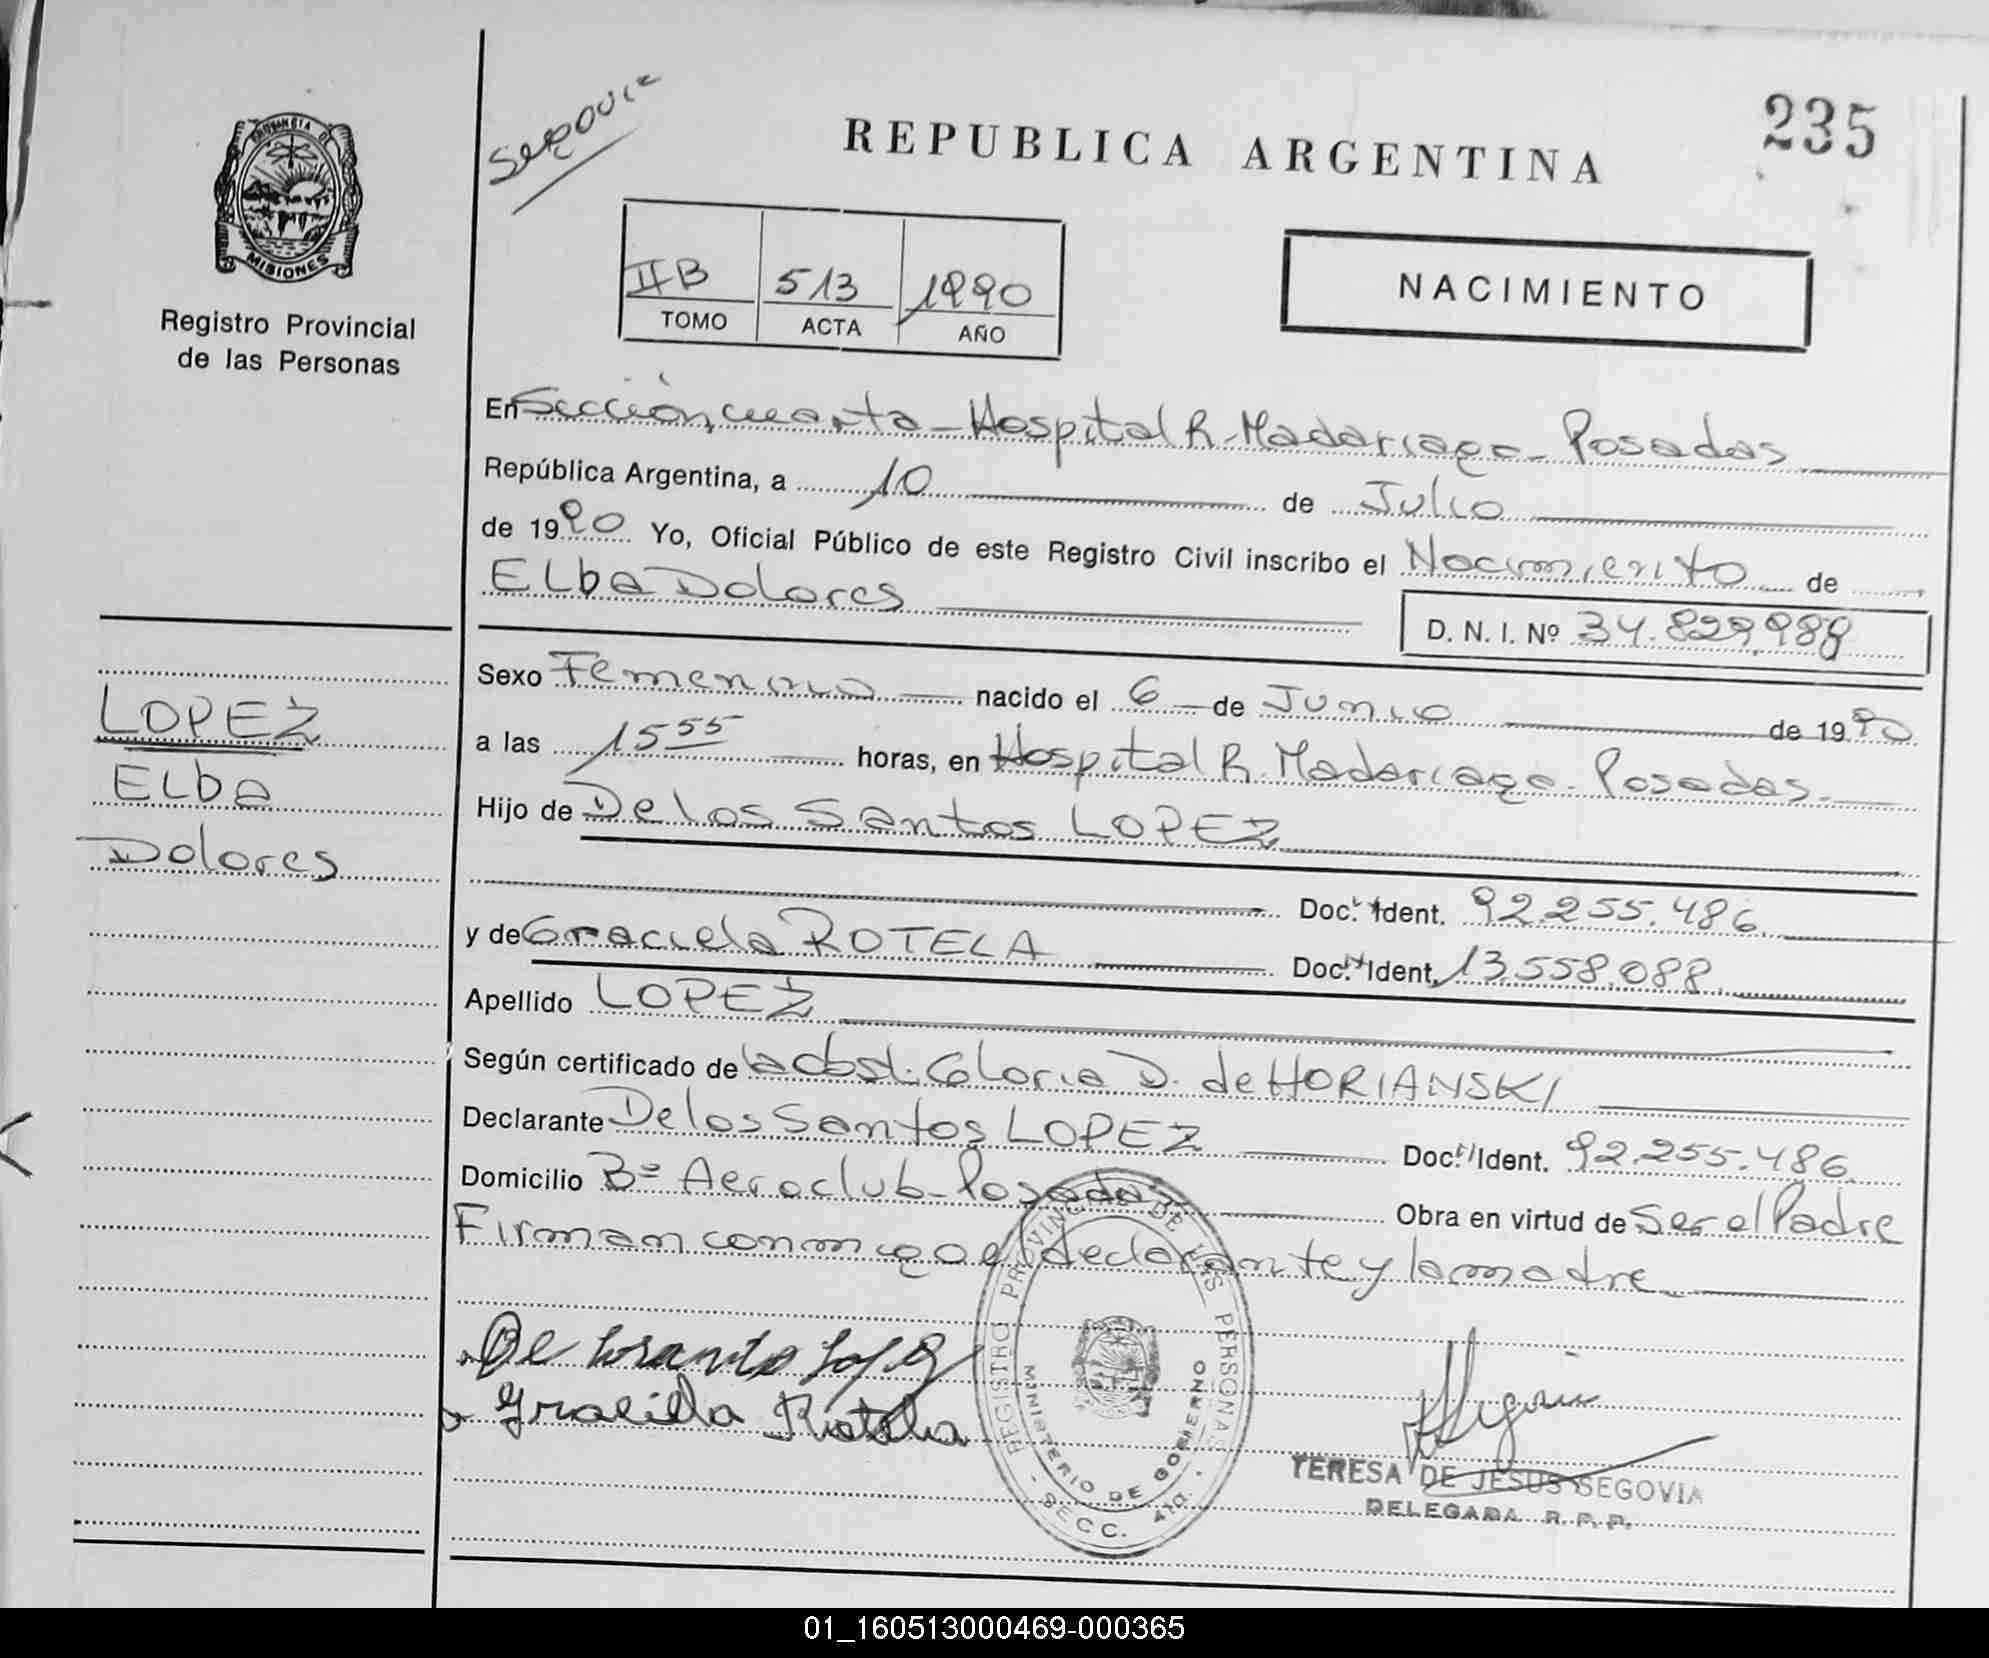 Segovia
REPUBLICA ARGENTINA
235
PROVINCIA DE
MISIONES
Registro Provincial
de las Personas
IIB 513 1990
TOMO ACTA AÑO
NACIMIENTO
En Sección cuarta - Hospital R. Madariaga - Posadas
República Argentina, a 10 de Julio
de 1990 Yo, Oficial Público de este Registro Civil inscribo el Nacimiento de
Elba Dolores
D. N. I. Nº 34.829.988
Sexo Femenino nacido el 6 de Junio de 1990
a las 15 55 horas, en Hospital R. Madariaga - Posadas.
Hijo de De los Santos LOPEZ
Doc. Ident. 92.255.486.
y de Graciela ROTELA Doc. Ident. 13.558.088.
Apellido LOPEZ
Según certificado de la Obst. Gloria D. de HORIANSKI
Declarante De los Santos LOPEZ Doc. Ident. 92.255.486.
Domicilio Bº Aeroclub - Posadas Obra en virtud de Ser el Padre
Firman conmigo el declarante y la madre
LOPEZ
Elba
Dolores
Graciela Rotela
REGISTRO PROVINCIAL DE LAS PERSONAS
MINISTERIO DE GOBIERNO
- SECC. 4ta. -
TERESA DE JESUS SEGOVIA
DELEGADA R. P. P.
01_160513000469-000365